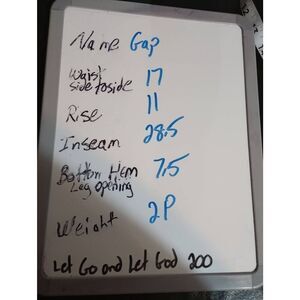 Name Gap
Waist 17
side to side
Rise 11
Inseam 28.5
Bottom Hem 7.5
Leg opening
Weight 2P
Let Go and Let God 200